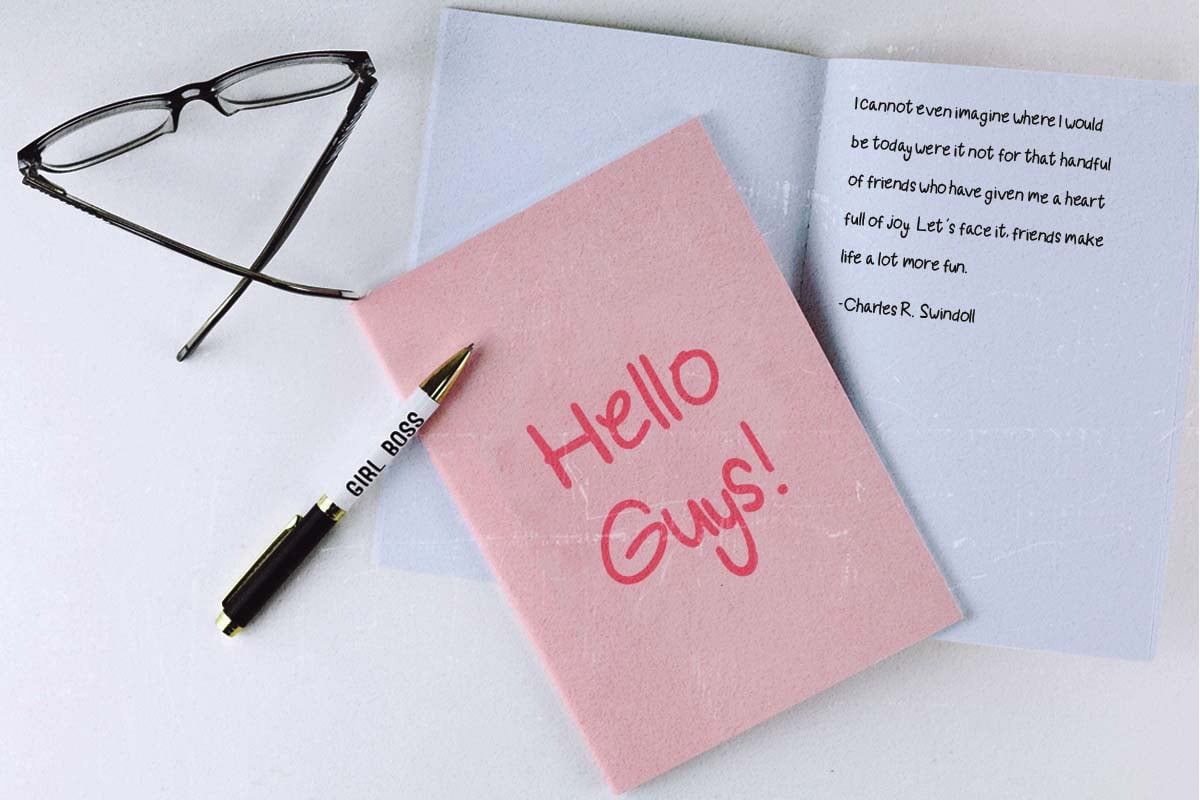 I cannot even imagine where I would
be today were it not for that handful
of friends who have given me a heart
full of joy. Let's face it, friends make
life a lot more fun.
-Charles R. Swindoll
Hello
Guys!
GIRL BOSS